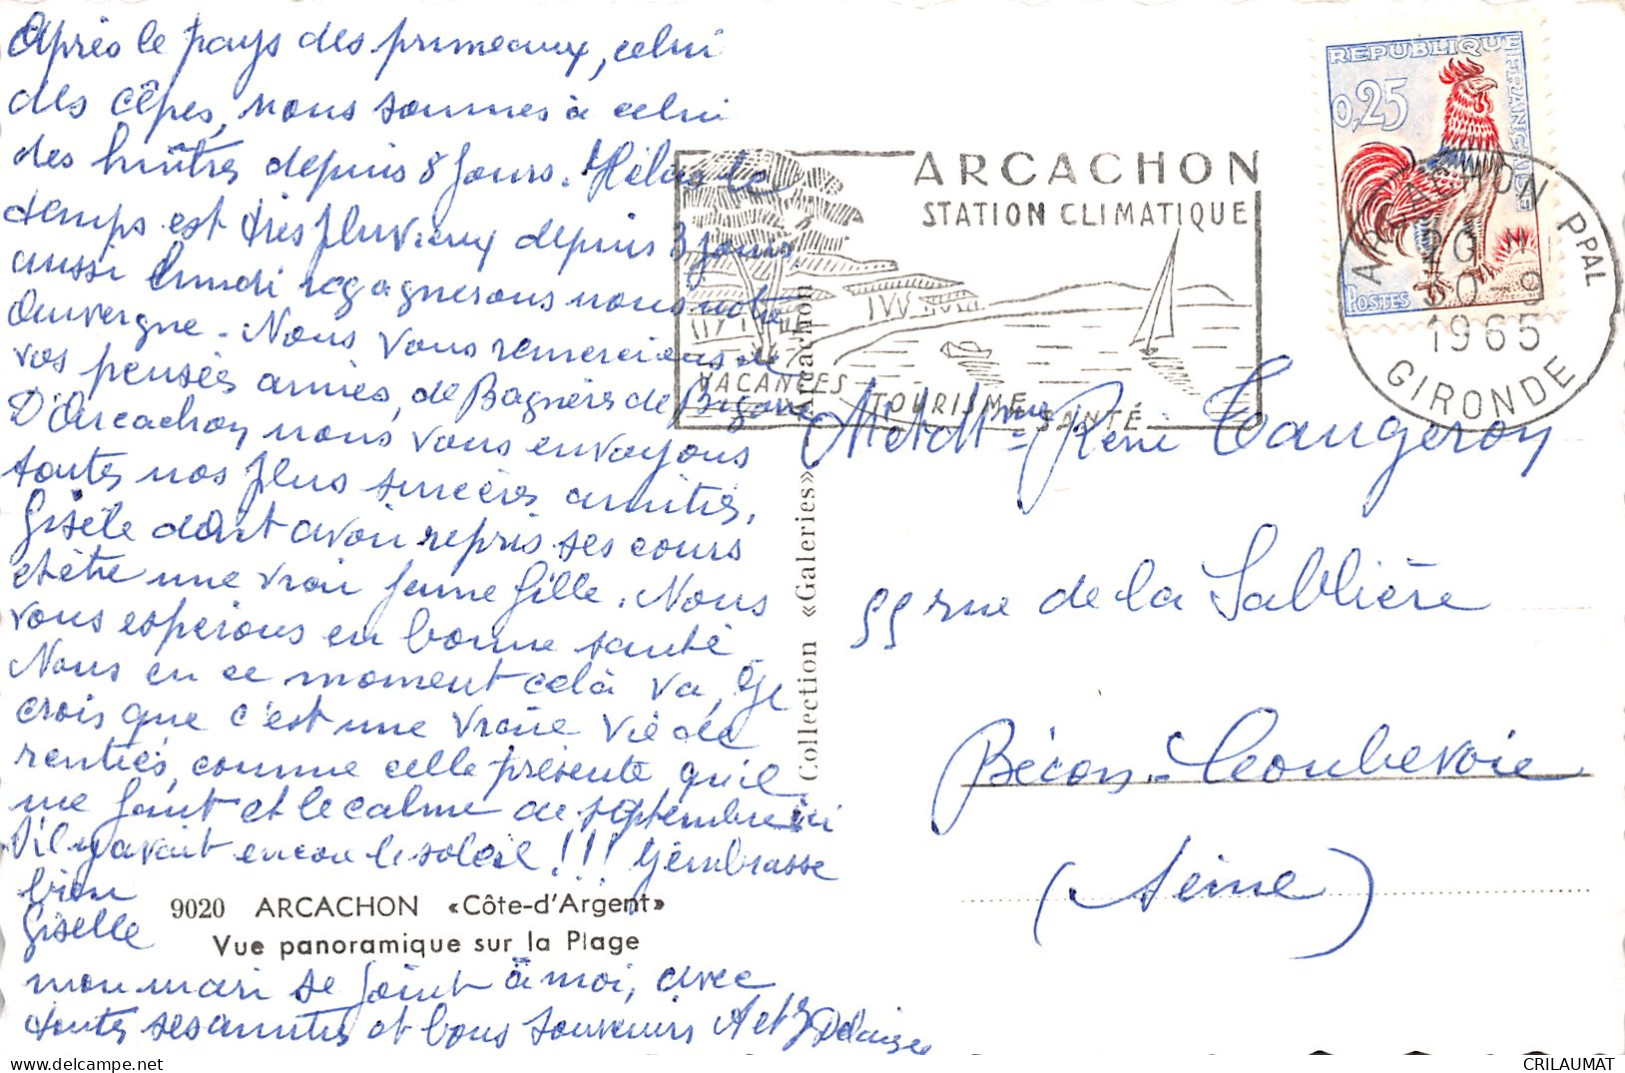 Après le pays des primeaux, celui
des cêpes, nous sommes à celui
des huîtres depuis 8 jours. Hélas le
temps est très pluvieux depuis 3 jours
aussi lundi regagnerons nous notre
Auvergne. Nous vous remercions de
vos pensées amies, de Bagnères de Bigorre
D'Arcachon nous vous envoyons
toutes nos plus sincères amitiés.
Gisèle doit avoir repris ses cours
et être une vraie jeune fille. Nous
vous espérons en bonne santé
Nous en ce moment celà va, Je
crois que c'est une vraie vie de
rentiés, comme celle présente qu'il
me faut et le calme de septembre ici
s'il y avait encore le soleil !!! J'embrasse
bien
Giselle
9020 ARCACHON «Côte-d'Argent»
Vue panoramique sur la Plage
mon mari se joint à moi, avec
toutes ses amitiés et bons souvenirs A et
Collection «Galeries» Arcachon
ARCACHON
STATION CLIMATIQUE
VACANCES TOURISME SANTÉ
REPUBLIQUE FRANÇAISE
0,25
POSTES
ARCACHON PPAL
30-9
1965
GIRONDE
M et Mme René Taugeron
55 rue de la Sablière
Bécon-Courbevoie
(Seine)
delcampe.net
CRILAUMAT